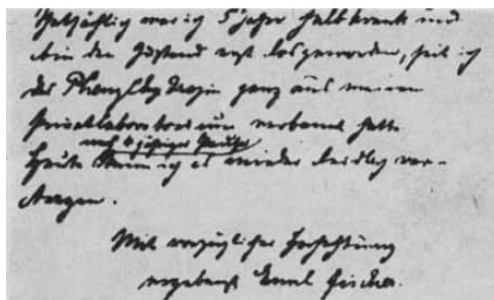 Thatsächlich war ich 5 Jahre halbkrank und
bin den Zustand erst losgeworden, seit ich
das Phenylhydrazin ganz aus meinem
Privatlaboratorium verbannt hatte.
nach 4 jähriger Pause
Heute kann ich es wieder leidlich ver-
tragen.
Mit vorzüglicher Hochachtung
ergebenst Emil Fischer.